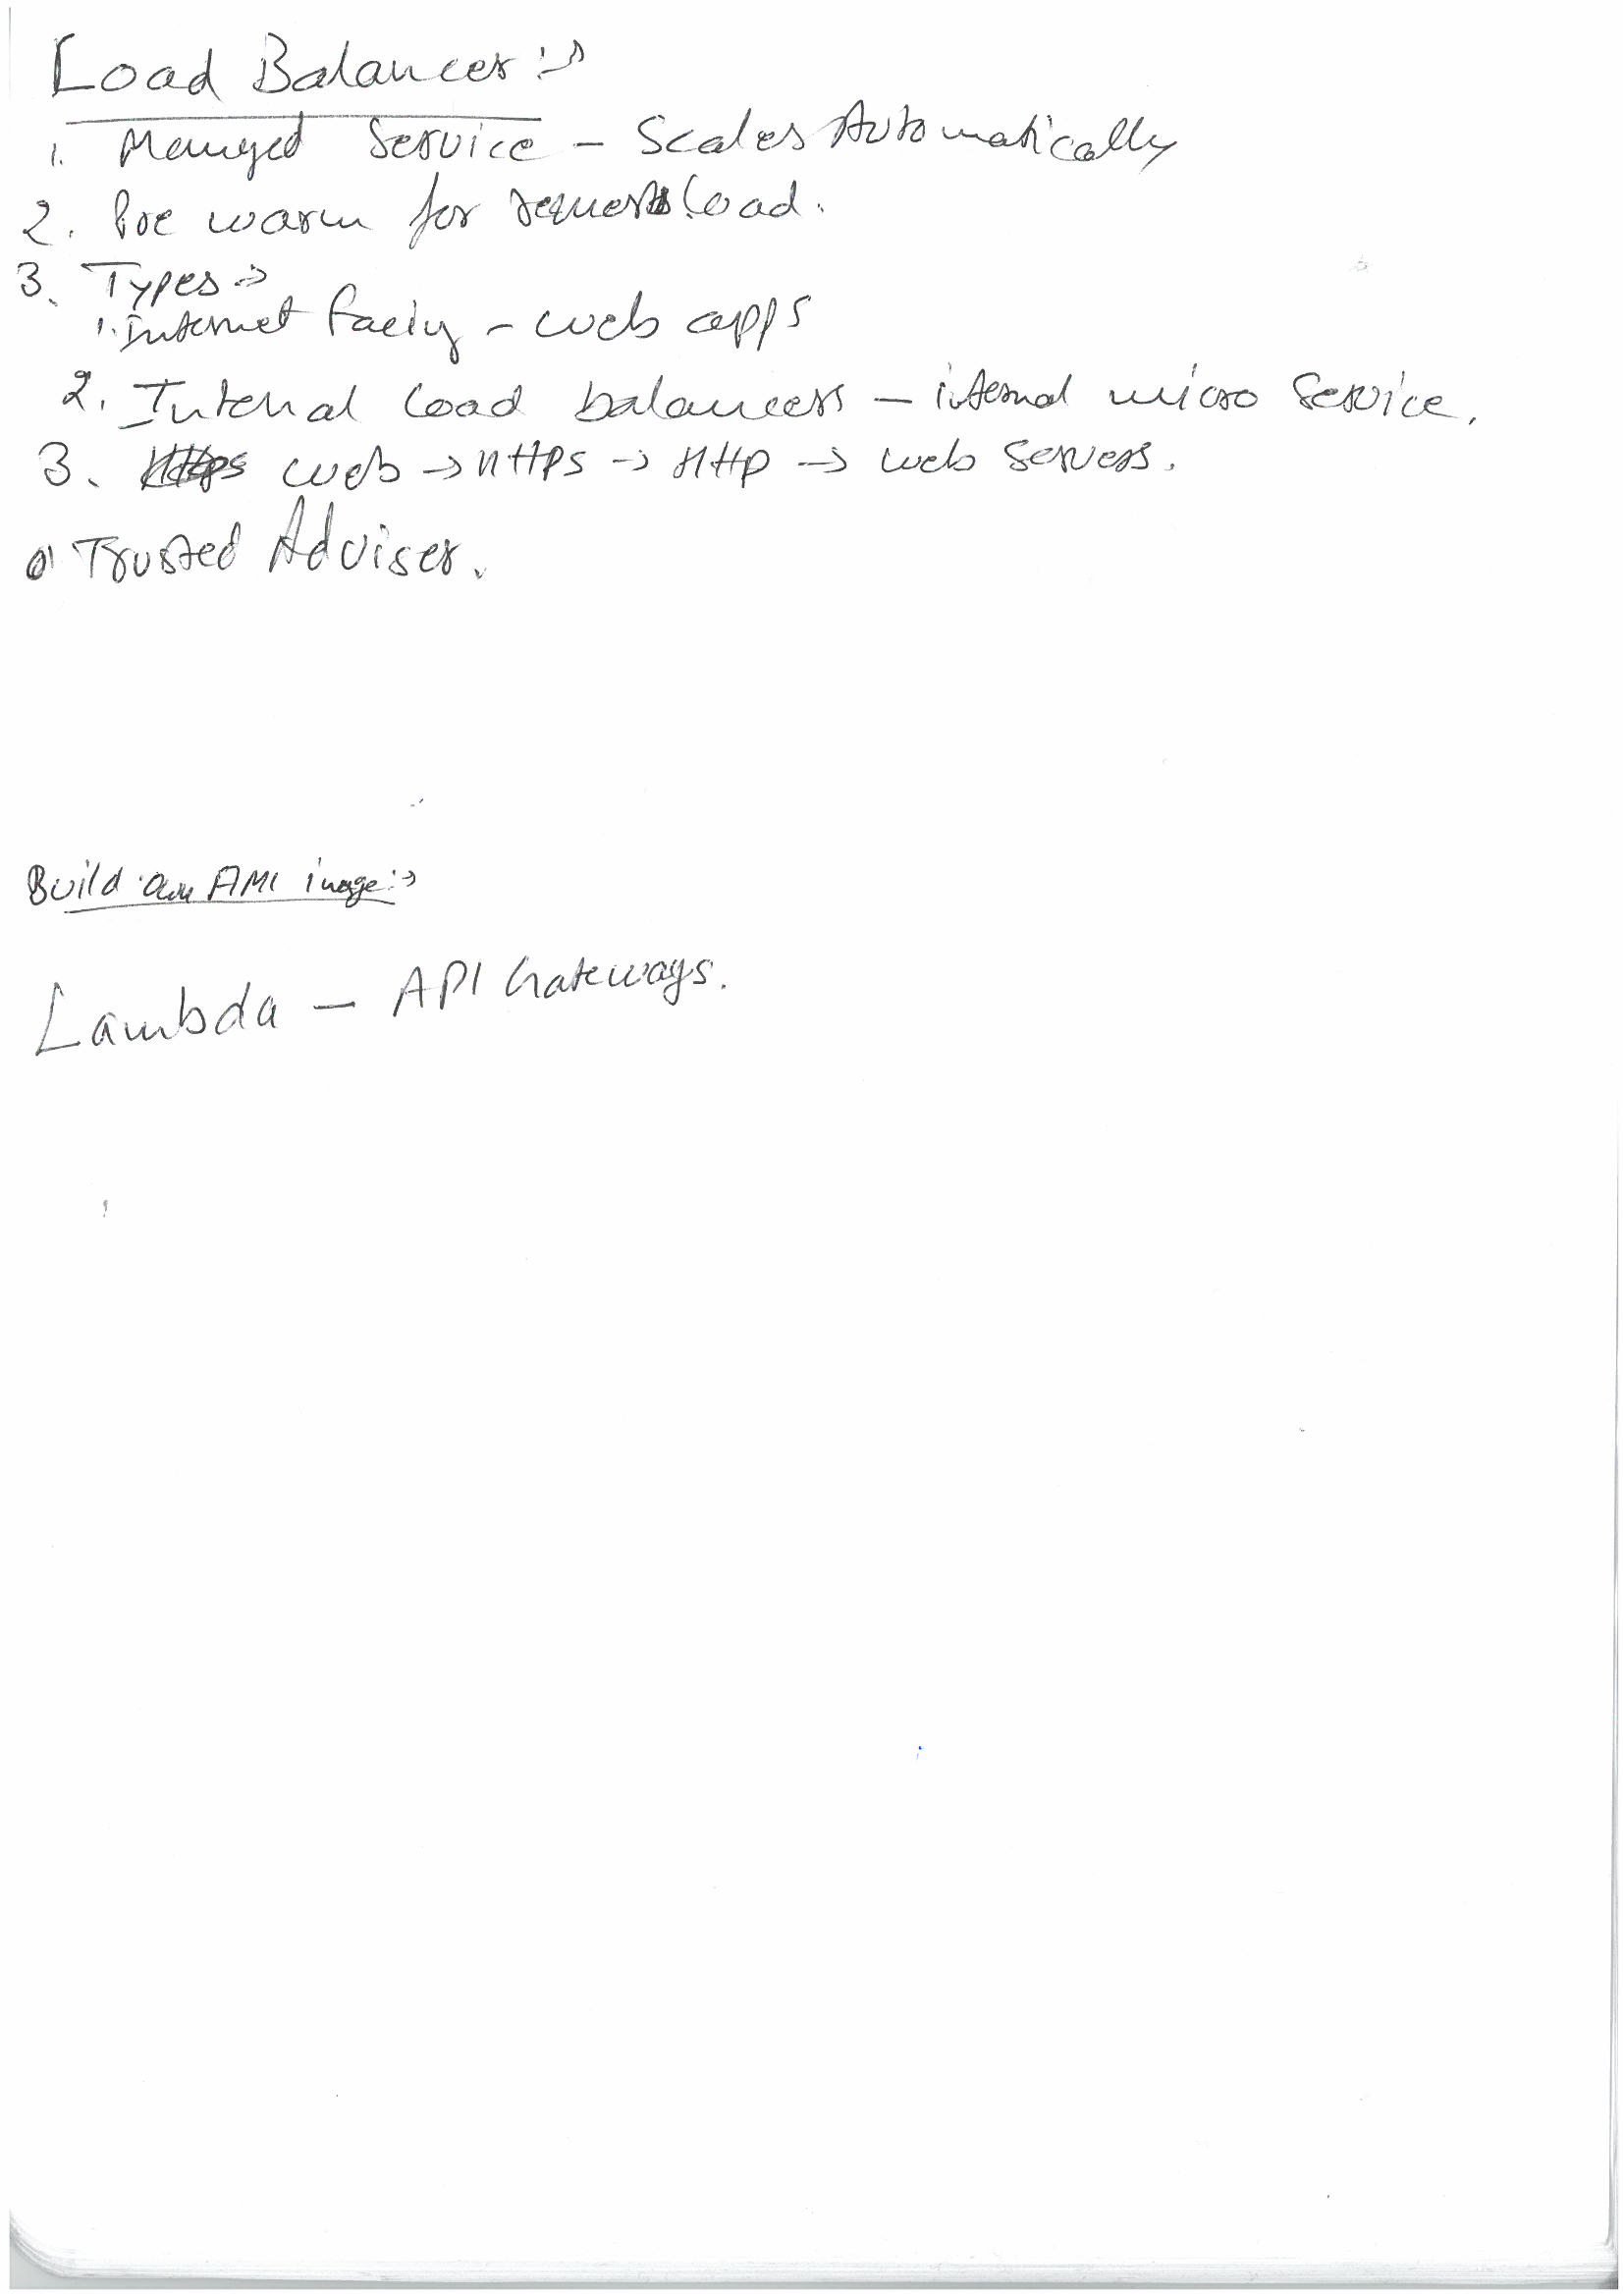 Load Balancer :->
1. Manged Service - Scales Automatically
2. Pre warm for request load.
3. Types ->
1. Internet facing - web apps
2. Internal load balancers - internal micro service.
3. web -> HTTPS -> HTTP -> web servers.
Trusted Adviser.
Build an AMI image :->
Lambda - API Gateways.